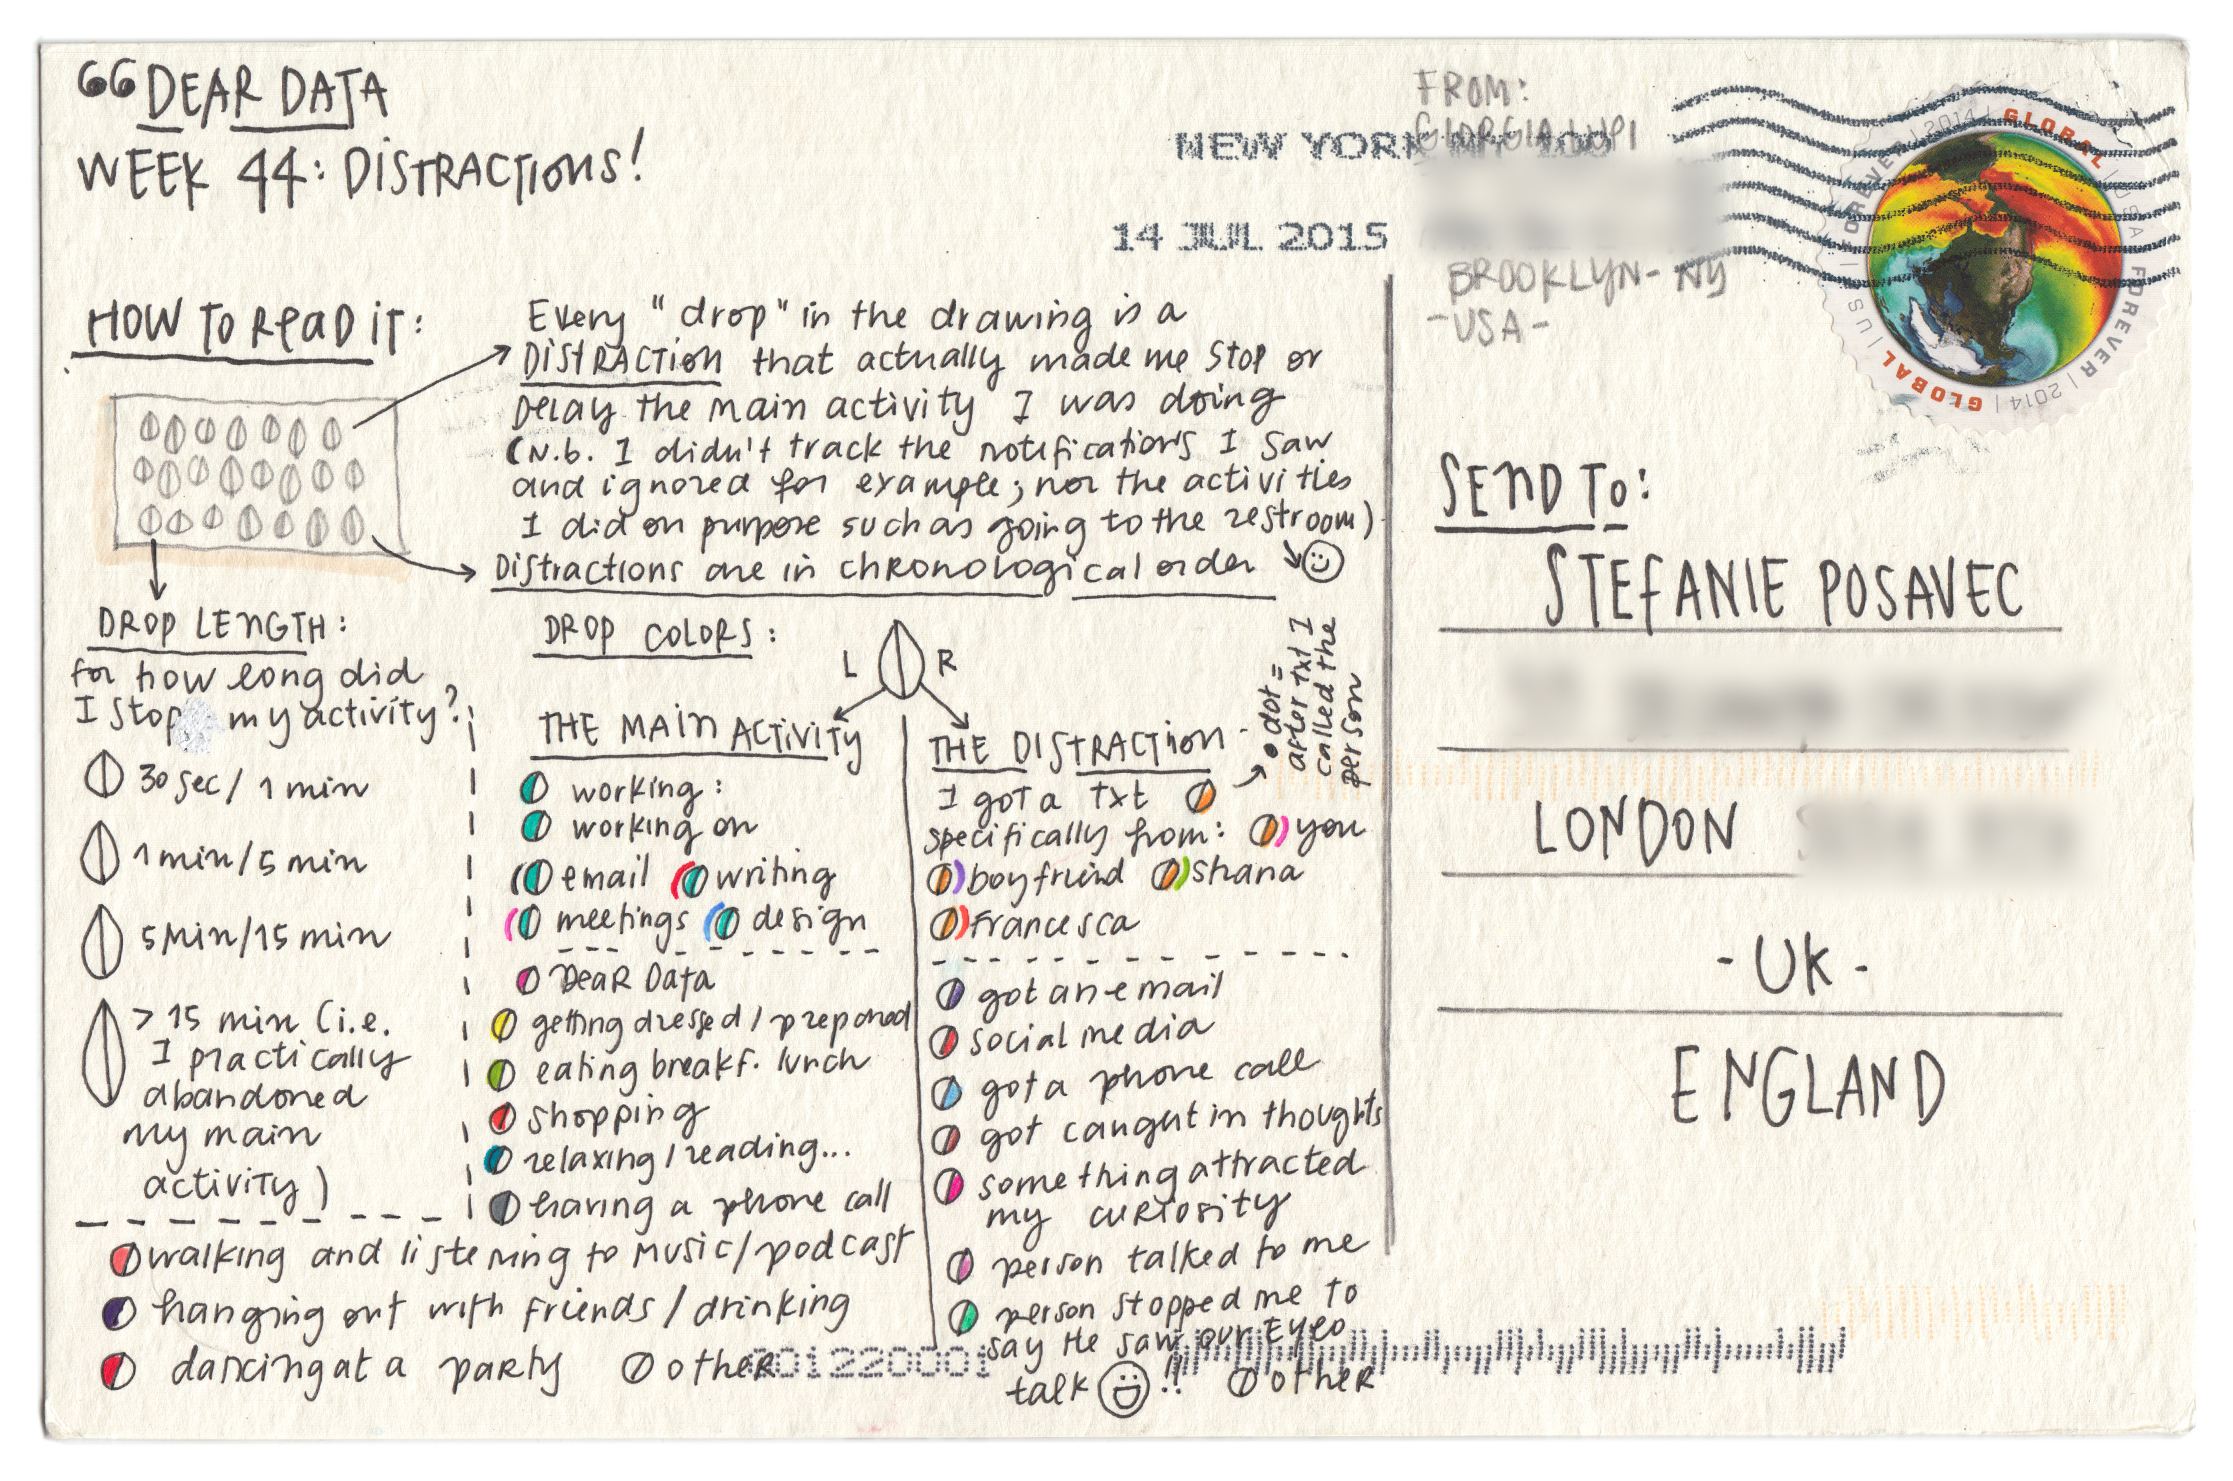 DEAR DATA
WEEK 44: DISTRACTIONS!
FROM:
GIORGIA LUPI
BROOKLYN - NY
- USA -
NEW YORK NY 100
14 JUL 2015
GLOBAL | USA FOREVER | 2014 | GLOBAL | USA FOREVER | 2014 |
HOW TO READ IT:
Every "drop" in the drawing is a
DISTRACTION that actually made me stop or
DELAY the main activity I was doing
(N.b. I didn't track the notifications I saw
and ignored for example; nor the activities
I did on purpose such as going to the restroom)
Distractions are in chronological order
DROP LENGTH:
for how long did
I stop my activity?
30 sec / 1 min
1 min / 5 min
5 min / 15 min
> 15 min (i.e.
I practically
abandoned
my main
activity)
DROP COLORS:
L R
THE MAIN ACTIVITY
working:
working on
email writing
meetings design
Dear Data
getting dressed / prepared
eating breakf. lunch
shopping
relaxing / reading...
having a phone call
walking and listening to music / podcast
hanging out with friends / drinking
dancing at a party other
THE DISTRACTION
dot =
after txt I
called the
person
I got a txt
specifically from: you
boyfriend shana
francesca
got an email
social media
got a phone call
got caught in thoughts
something attracted
my curiosity
person talked to me
person stopped me to
say He saw our Eyeo
talk !! other
201220001
SEND TO:
STEFANIE POSAVEC
LONDON
- UK -
ENGLAND